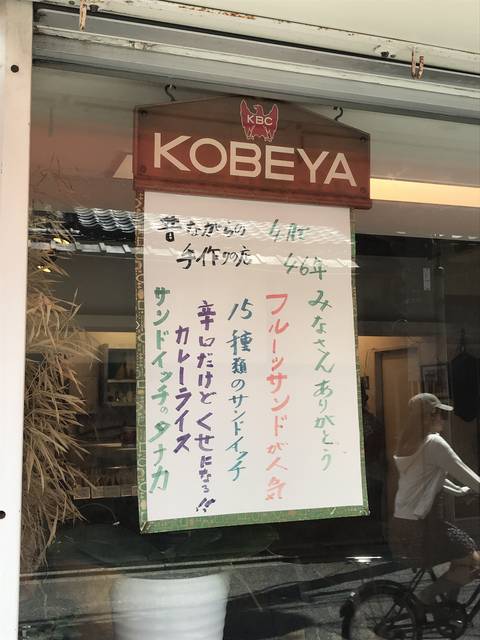 KBC
KOBEYA
昔ながらの
手作りの店
46年
みなさんありがとう
フルーツサンドが人気
15種類のサンドイッチ
辛口だけどくせになる!!
カレーライス
サンドイッチのタナカ